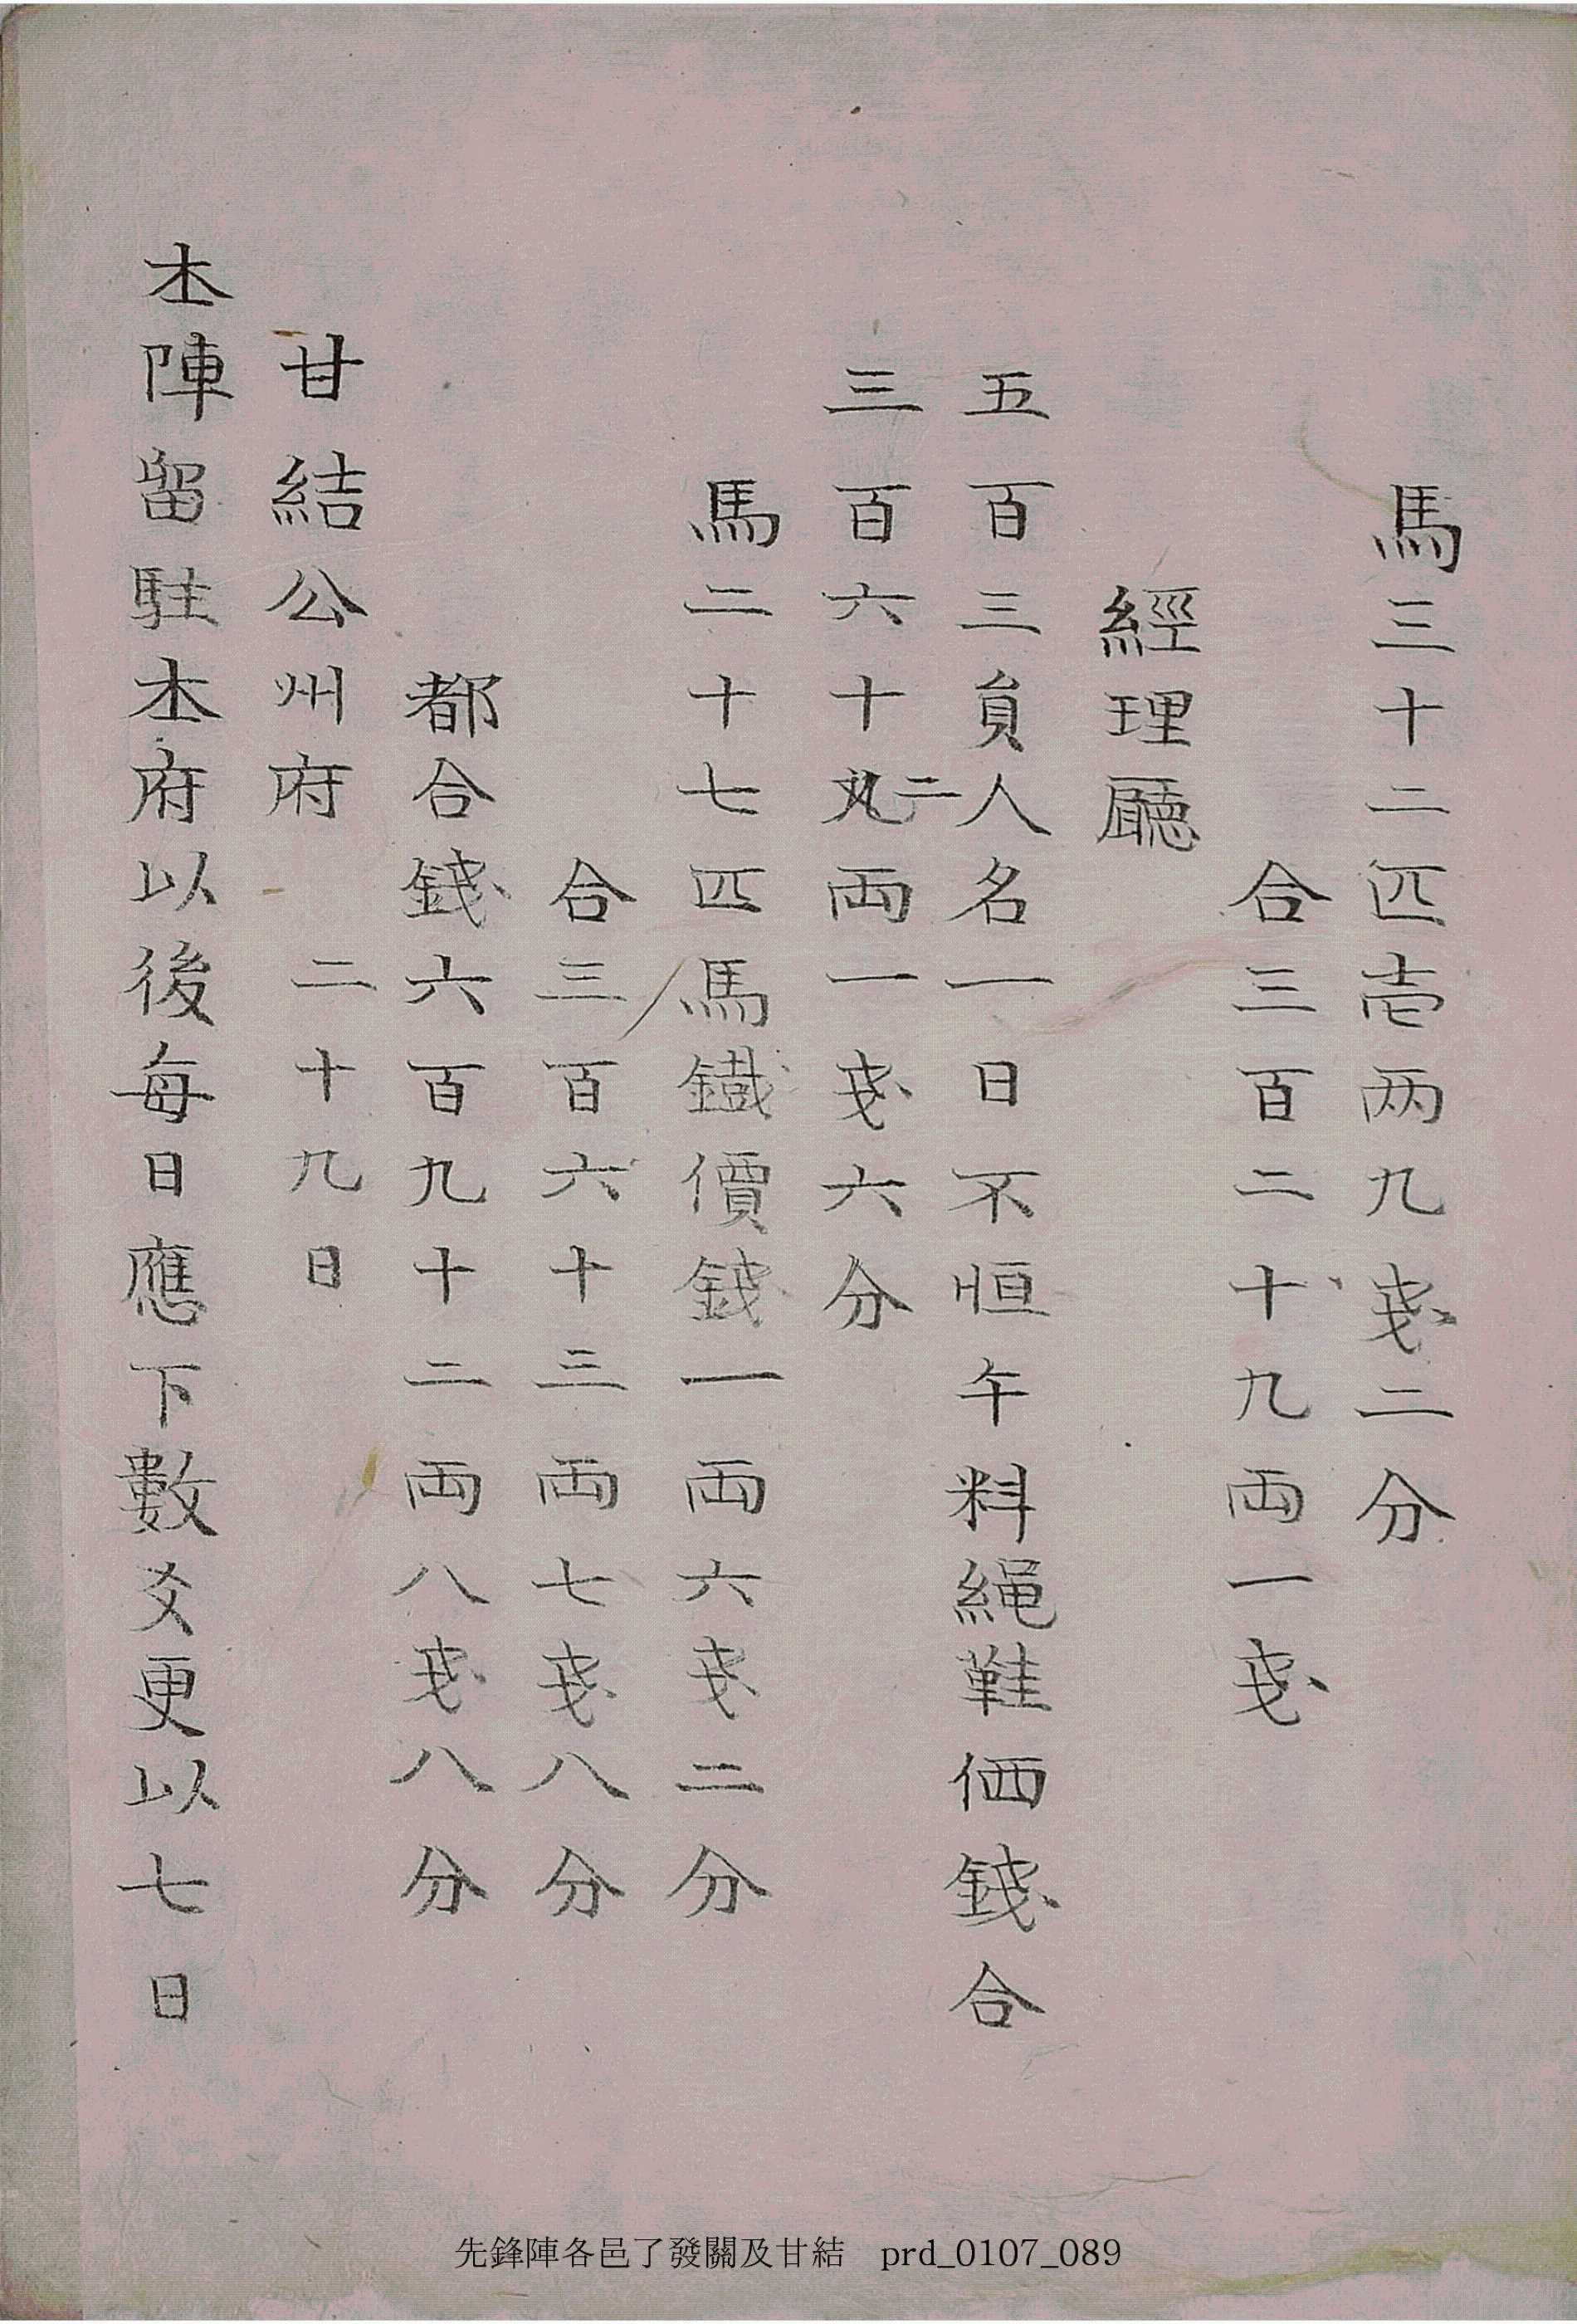 馬三十二匹壱两九戔二分
合三百二十九両一戔
經理廳
五百三員人名一日不恒午料繩鞋価錢合
三百六十二両一戔六分
馬二十七匹馬鐵價錢一両六戔二分
合三百六十三両七戔八分
都合錢六百九十二両八戔八分
甘結公州府 二十九日
本陣留駐本府以後每日應下數爻更以七日
先鋒陣各邑了發關及甘結 prd_0107_089